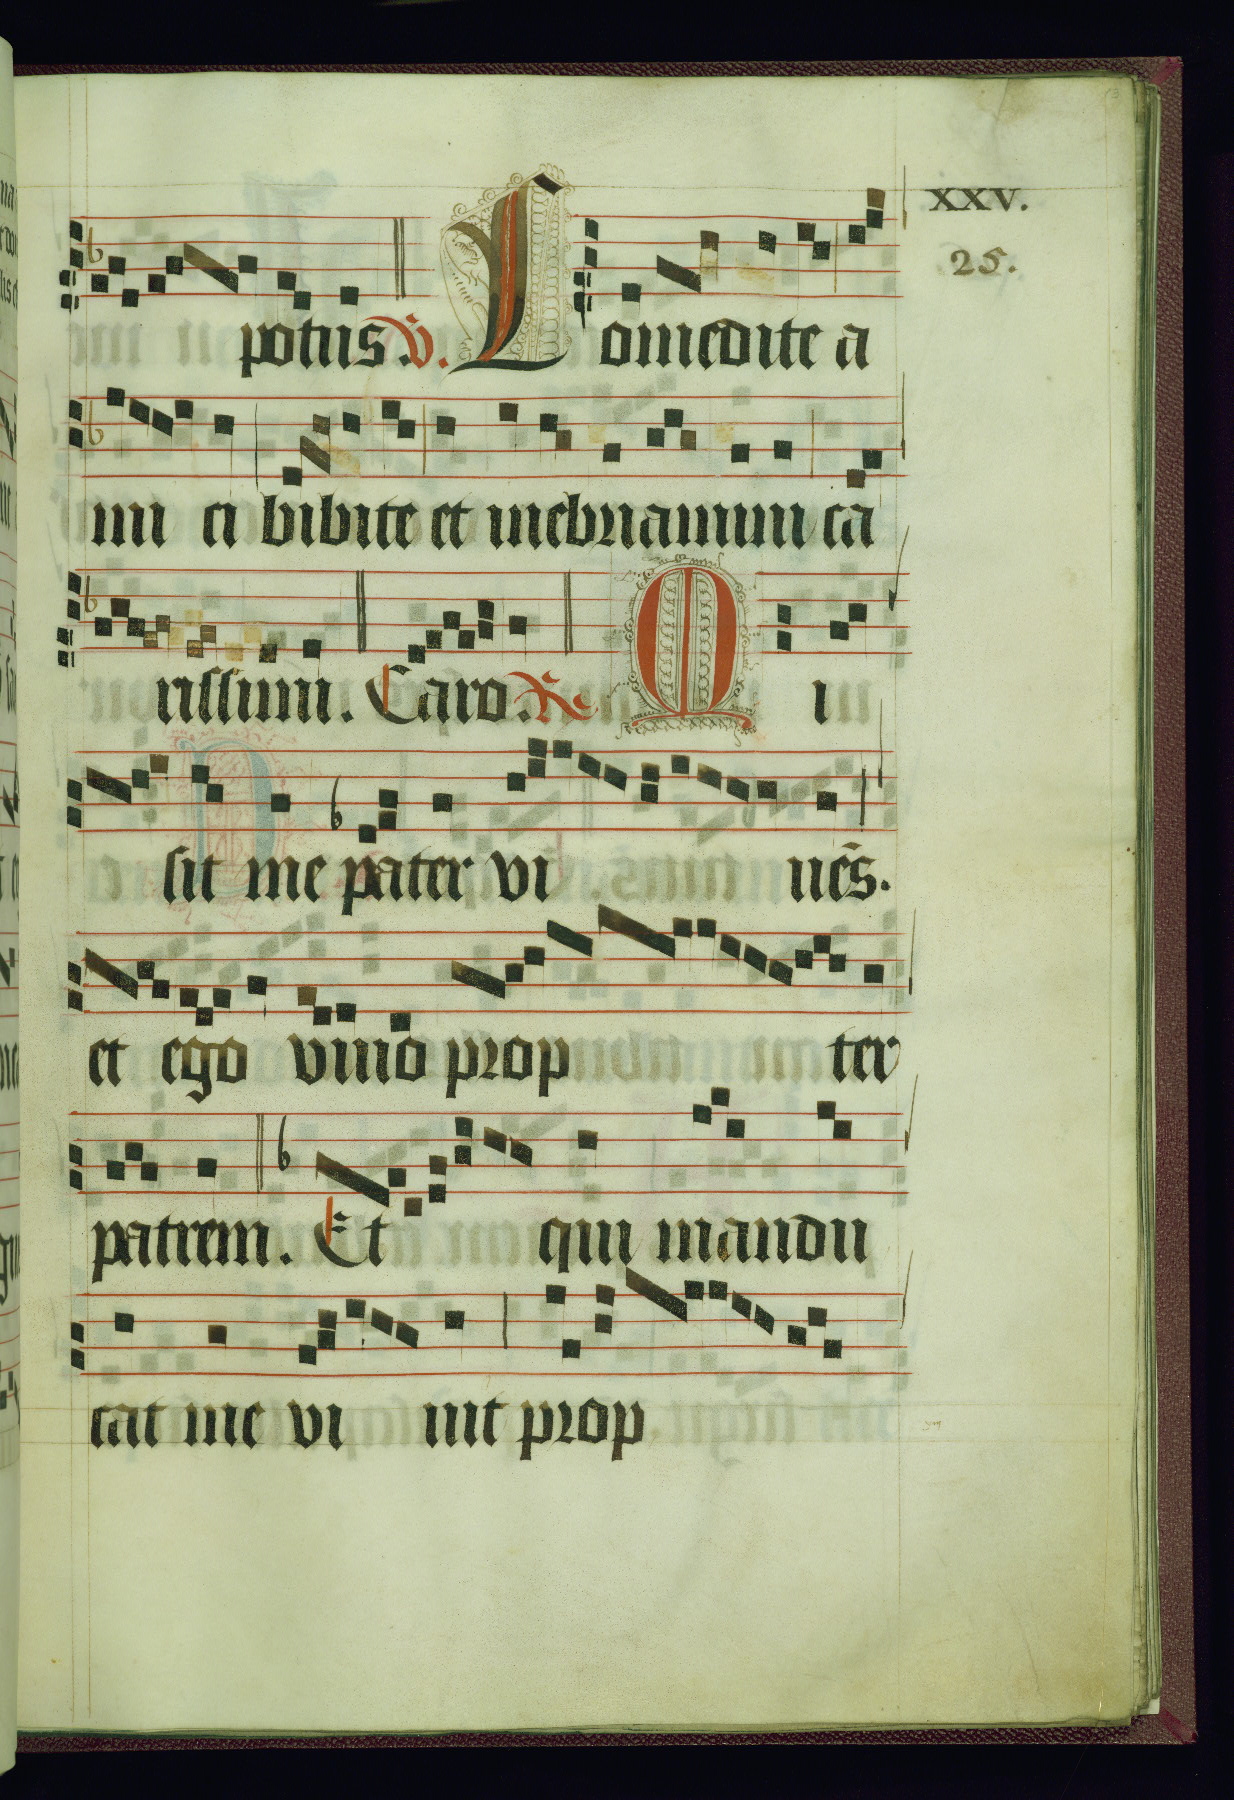 XXV.
25.
potus. V. Comedite a
mi ci bibite et inebriamini ca
rissimi. Caro. R. Mi
sit me pater vi uēs.
et ego vivo prop ter
patrem. Et qui mandu
cat me vi uit prop